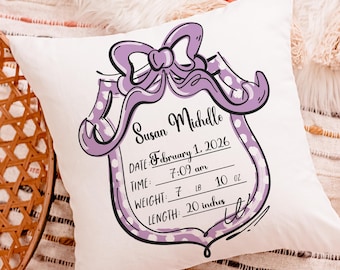 Susan Michelle
DATE: February 1, 2026
TIME: 7:09 am
WEIGHT: 7 LB 10 OZ
LENGTH: 20 inches